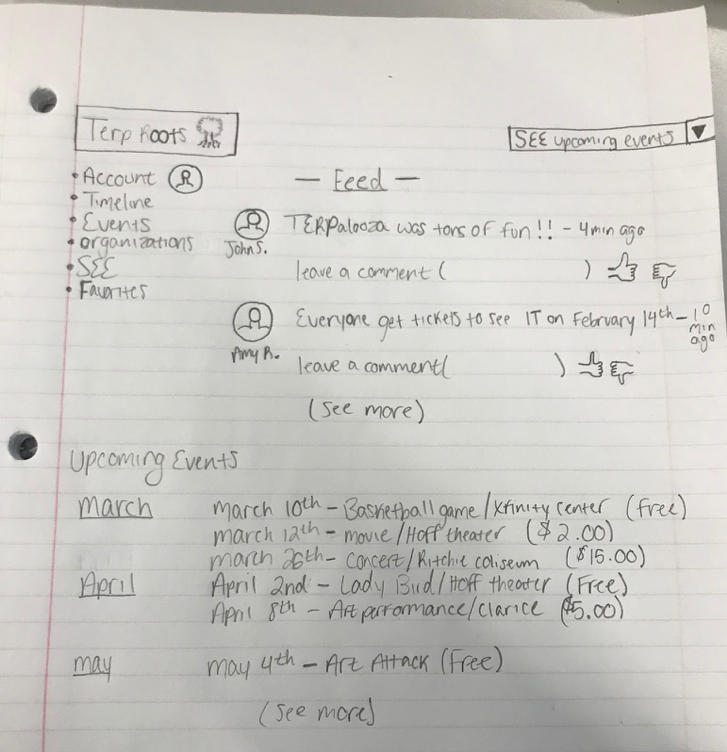 Terp Roots
SEE upcoming events
• Account
• Timeline
• Events
• organizations
• SEE
• Favorites
— Feed —
John S.
TERPalooza was tons of fun!! - 4 min ago
leave a comment ( )
Amy R.
Everyone get tickets to see IT on February 14th - 10 min ago
leave a comment ( )
(see more)
Upcoming Events
March
march 10th - Basketball game/Xfinity center (free)
march 12th - movie/Hoff theater ($2.00)
march 26th - concert/Ritchie coliseum ($15.00)
April
April 2nd - Lady Bird/Hoff theater (Free)
April 8th - Art performance/Clarice ($5.00)
may
may 4th - Art Attack (Free)
(see more)